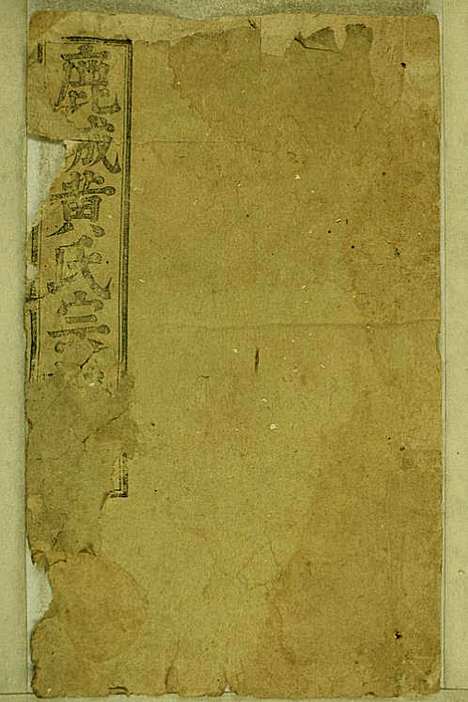 鹿城黄氏宗